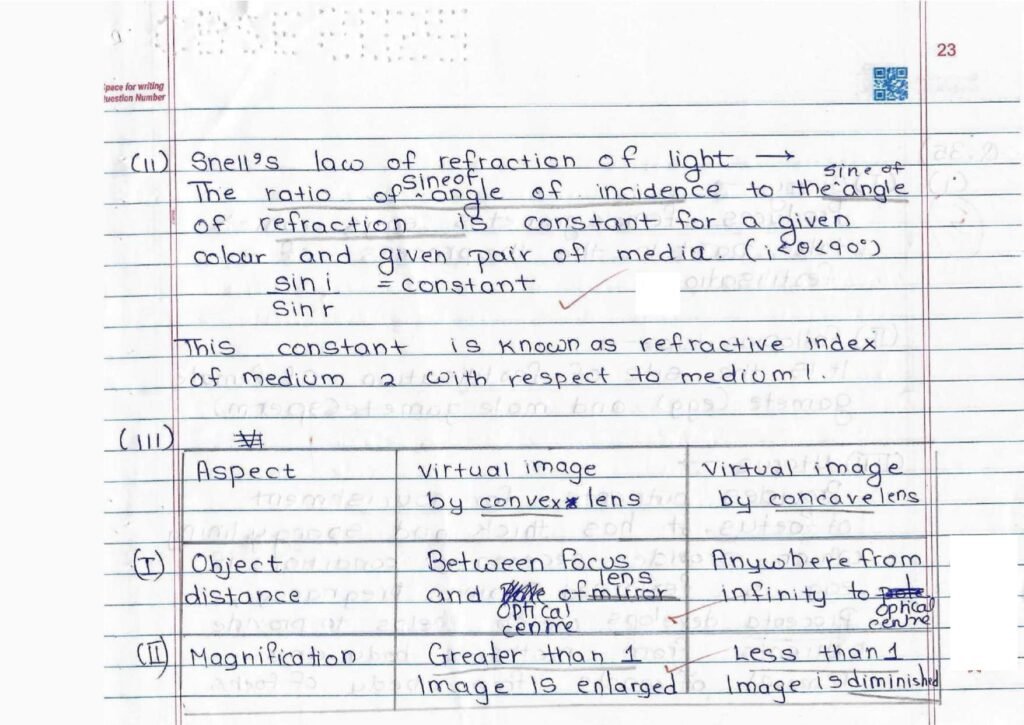 23
Space for writing
Question Number
(II) Snell's law of refraction of light →
The ratio of sine of angle of incidence to the sine of angle
of refraction is constant for a given
colour and given pair of media. (i<θ<90°)
sin i = constant
Sin r
This constant is known as refractive index
of medium 2 with respect to medium 1.
(III)
Aspect Virtual image by convex lens Virtual image by concave lens
(I) Object distance Between focus and optical centre of lens Anywhere from infinity to optical centre
(II) Magnification Greater than 1 Image is enlarged Less than 1 Image is diminished